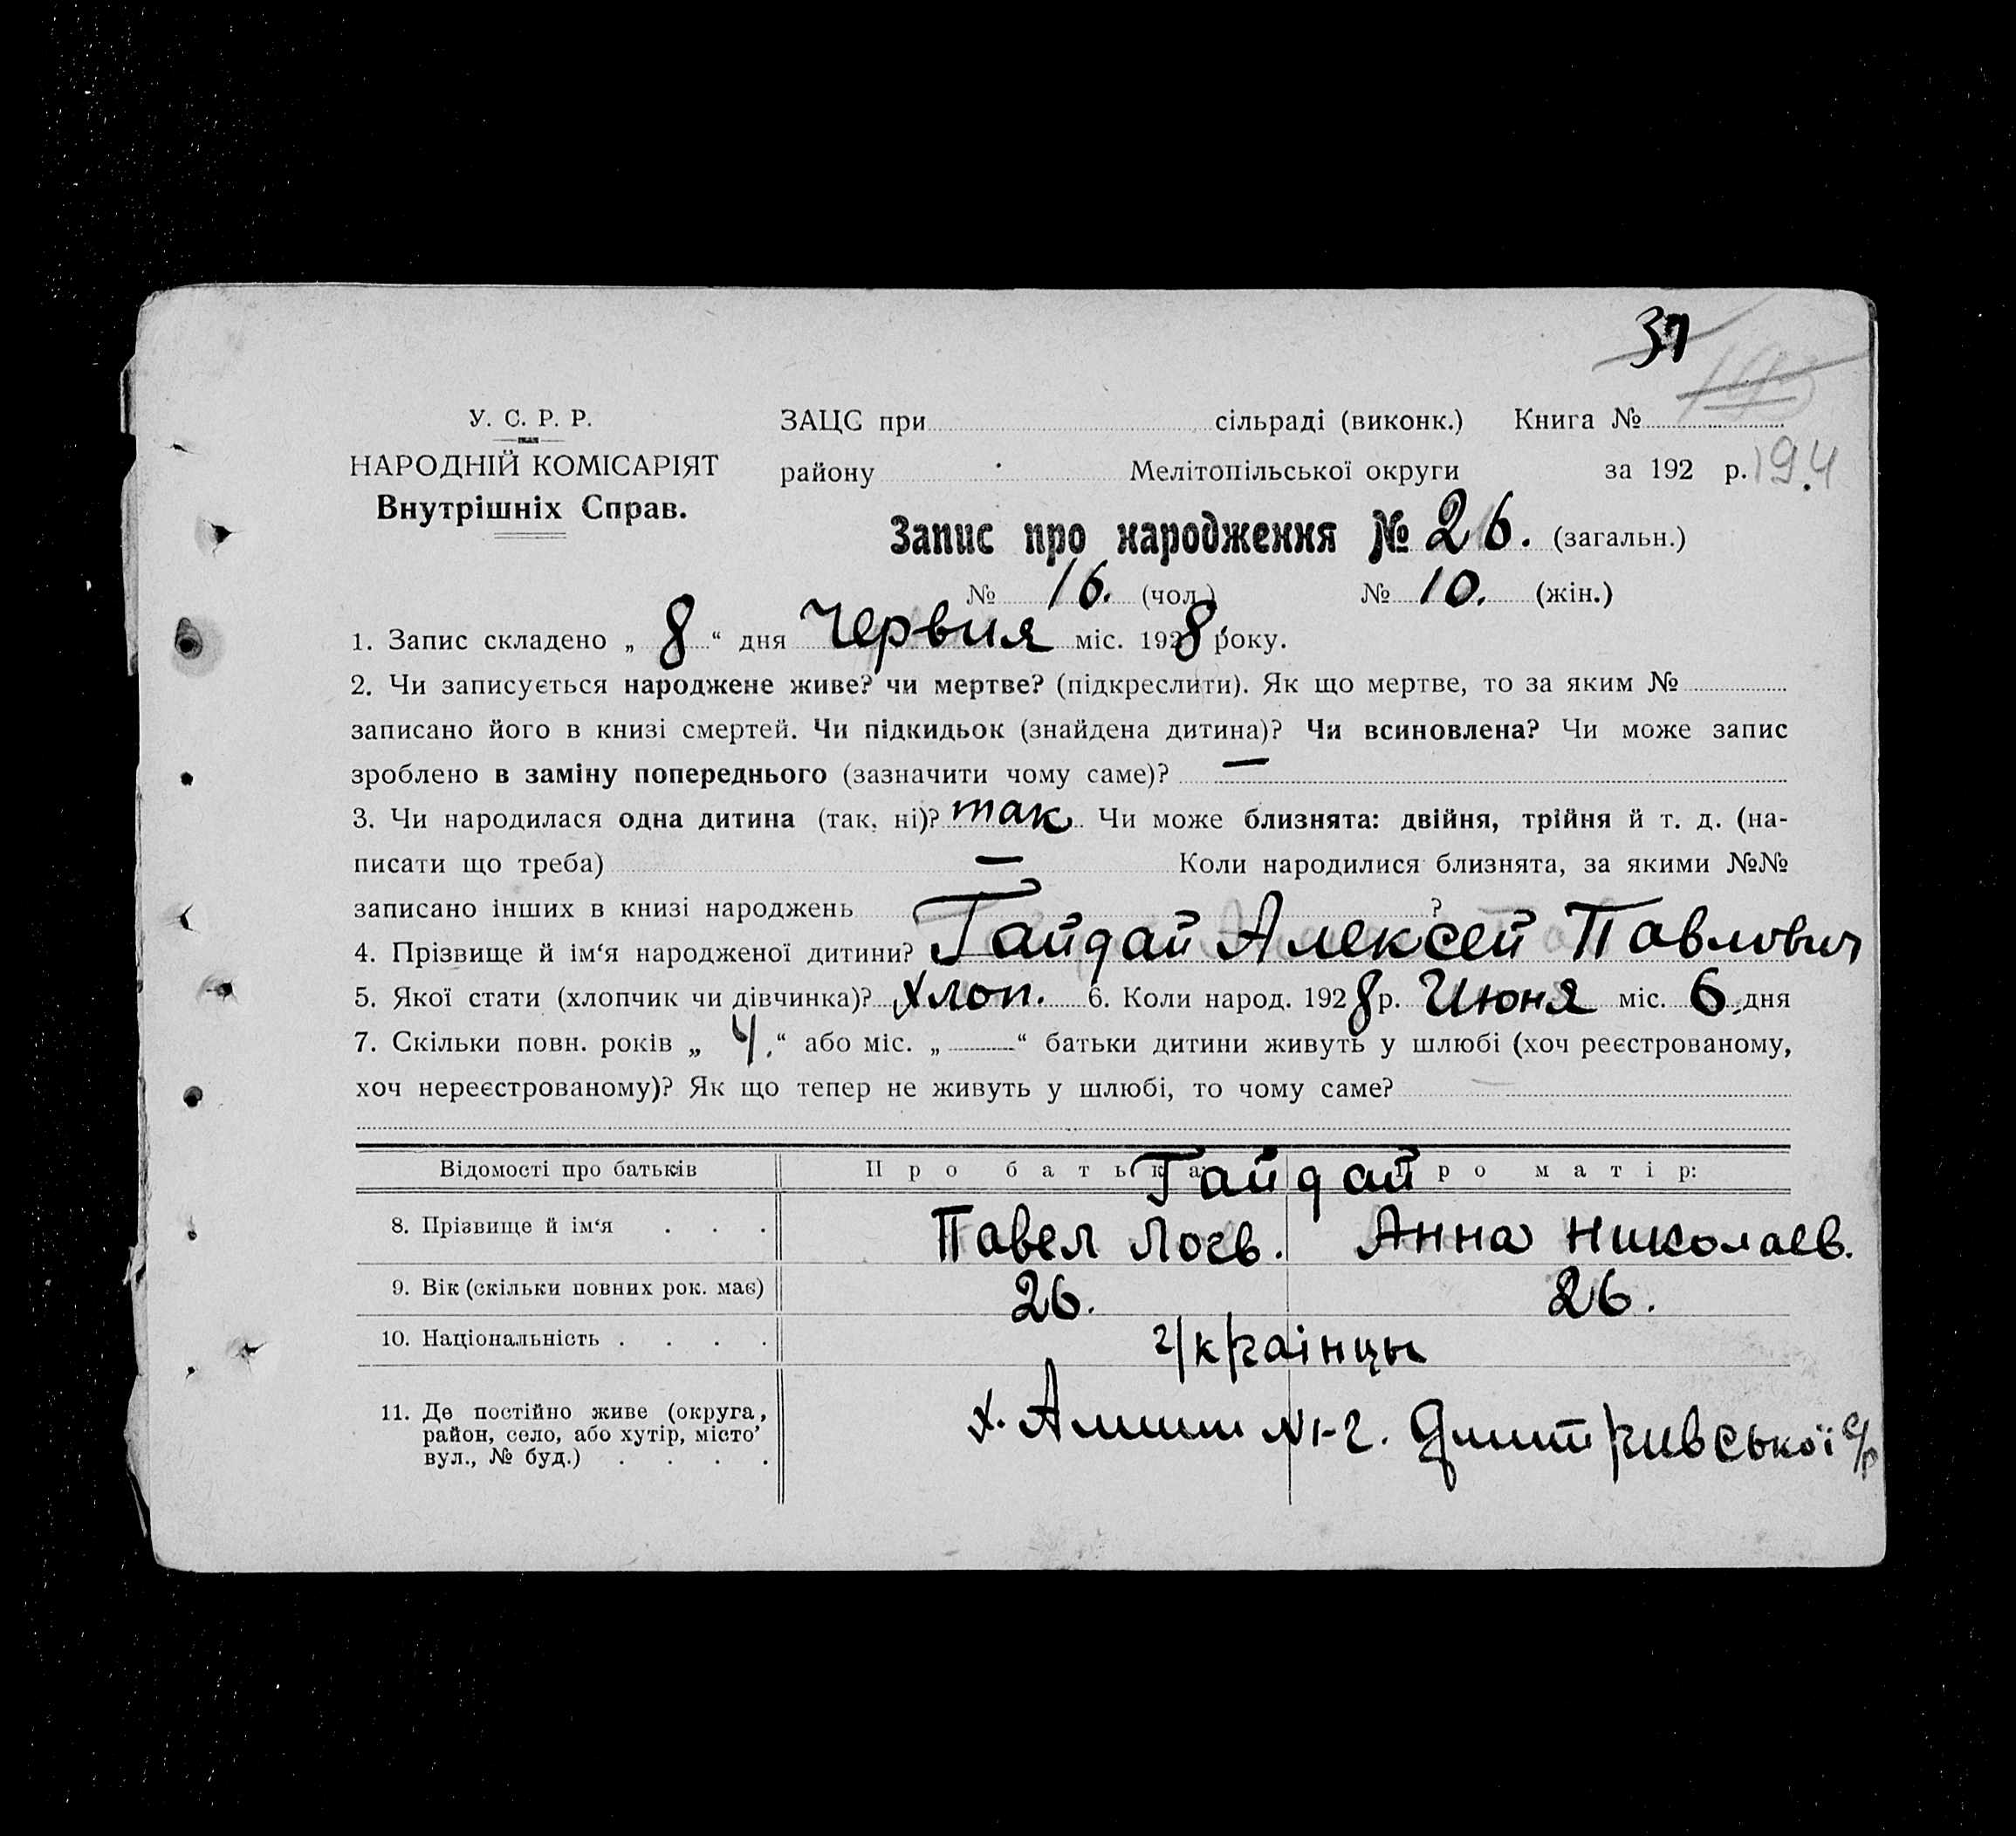 31
193
У. С. Р. Р.
НАРОДНІЙ КОМІСАРІЯТ
Внутрішніх Справ.
ЗАЦС при сільраді (виконк.) Книга №
району Мелітопільської округи за 192 р. 194
Запис про народження № 26. (загальн.)
№ 16. (чол.) № 10. (жін.)
1. Запис складено „ 8 “ дня Червня міс. 1928 року.
2. Чи записується народжене живе? чи мертве? (підкреслити). Як що мертве, то за яким №
записано його в книзі смертей. Чи підкидьок (знайдена дитина)? Чи всиновлена? Чи може запис
зроблено в заміну попереднього (зазначити чому саме)? —
3. Чи народилася одна дитина (так, ні)? так Чи може близнята: двійня, трійня й т. д. (на-
писати що треба) — Коли народилися близнята, за якими №№
записано інших в книзі народжень ?
4. Прізвище й ім‘я народженої дитини? Гайдай Алексей Павлович
5. Якої стати (хлопчик чи дівчинка)? хлоп. 6. Коли народ. 1928 р. Июня міс. 6 дня
7. Скільки повн. років „ 4. “ або міс. „ — “ батьки дитини живуть у шлюбі (хоч реєстрованому,
хоч нереєстрованому)? Як що тепер не живуть у шлюбі, то чому саме?
Відомості про батьків Про батька: Про матір:
Гайдай
8. Прізвище й ім‘я . . . Павел Логв. Анна Николаев.
9. Вік (скільки повних рок. має) 26. 26.
10. Національність . . . . Українцы
11. Де постійно живе (округа, район, село, або хутір, місто, вул., № буд.) . . . . х. №1-2. Дмитривської с/р